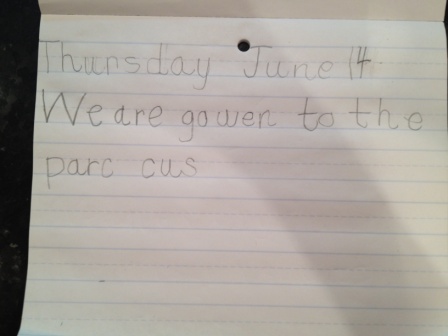 Thursday June 14
We are gowen to the
parc cus